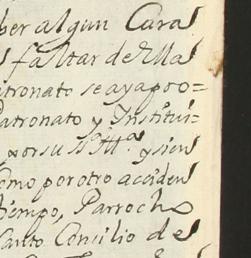 ber algun Cura
faltar de Ella
atronato se aya pro=
Patronato y Institui=
por su Sᵃ Illᵐᵃ y sien
Como por otro acciden
tiempo, Parrocho
Santo Concilio de